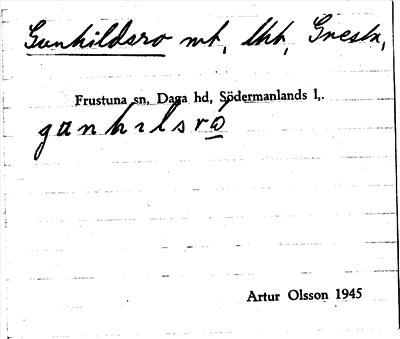 Gunhildsro mt, lht, Gnesta,
Frustuna sn, Daga hd, Södermanlands l,.
gunhilsrò
Artur Olsson 1945